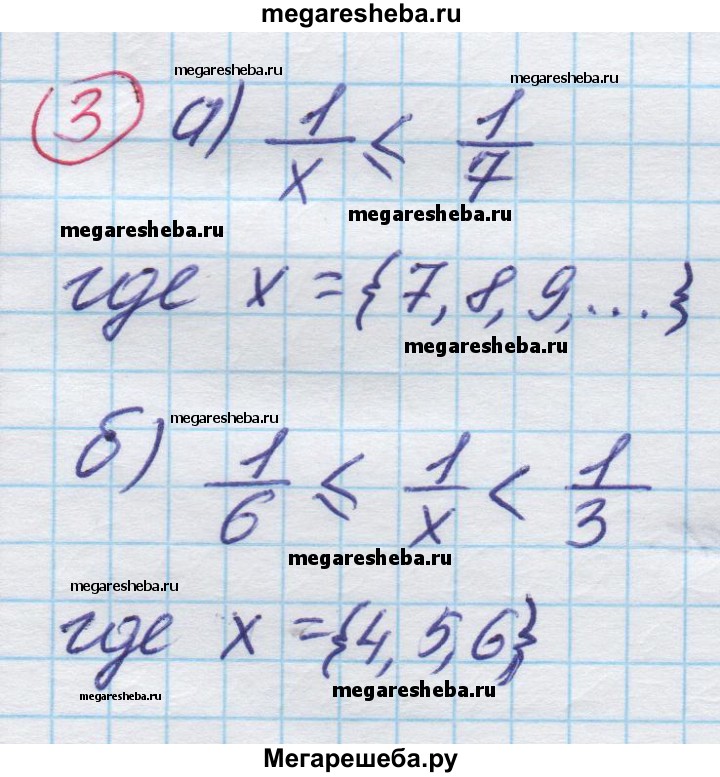 megaresheba.ru
megaresheba.ru
megaresheba.ru
3 а) 1/x ≤ 1/7
megaresheba.ru
megaresheba.ru
где x = {7, 8, 9, ...}
megaresheba.ru
megaresheba.ru
б) 1/6 ≤ 1/x < 1/3
megaresheba.ru
megaresheba.ru
где x = {4, 5, 6}
megaresheba.ru
megaresheba.ru
Мегарешеба.ру